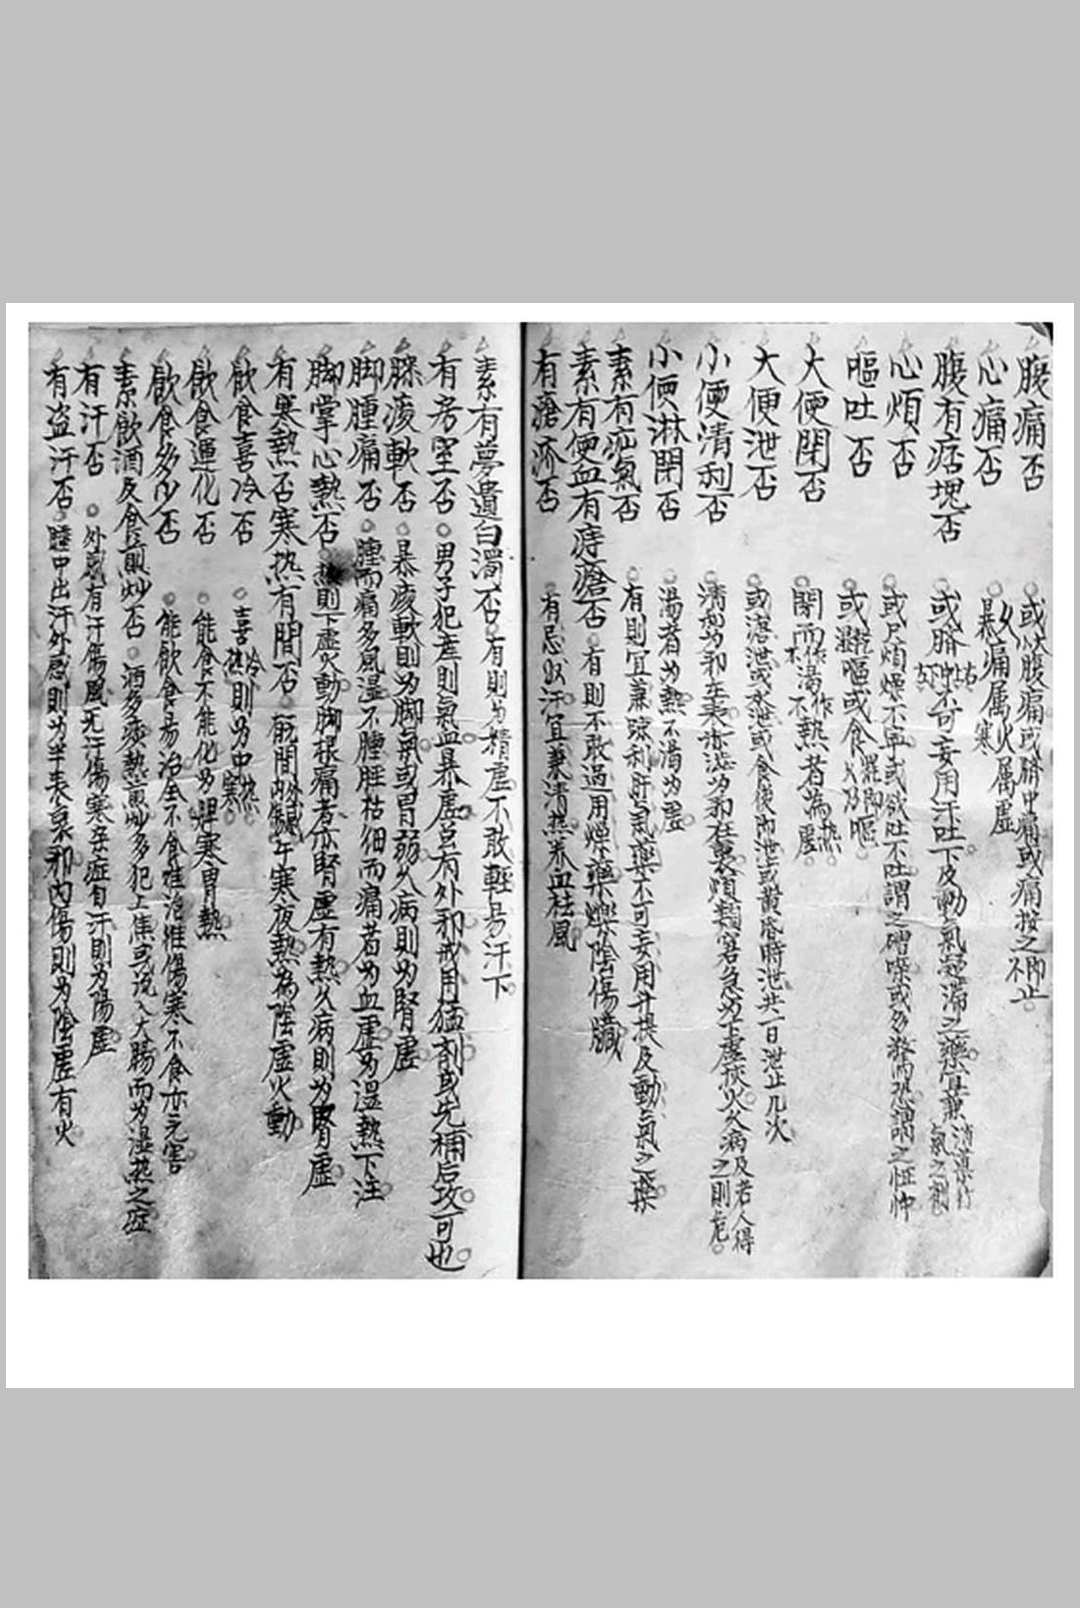 腹痛否 或以腹痛或臍中痛或痛按之不即止
心痛否 暴久痛属火寒属虚
腹有痞塊否 或臍上下左右不可妄用汗吐下及動氣凝滞之藥宜兼消
心煩否 或只煩燥不寧或欲吐不吐謂之嘈噪或多驚謂之怔忡
嘔吐否 或乾嘔或食罷即嘔
大便閉否 閉而作渴作熱者為熱不為虛
大便泄否 或溏泄或水泄或食後即泄或黄昏時泄共一日泄止几次
小便清利否 清利為邪在表赤澁為邪在裏頻數窘急为下虚挾火久病及老人得之則危
小便淋閉否 渴者为熱不渴为虚
素有疝氣否 有則宜兼疎利肝氣藥不可妄用升提及動氣之藥
素有便血有痔瘡否 有則不敢過用燥藥爍陰傷臟
有瘡疥否 有忌以汗宜兼清热养血祛風
素有夢遺白濁否 有則为精虚不敢輕易汗下
有房室否 男子犯産則氣血暴虚岂有外邪戒用猛剤或先補后攻可也
膝痠軟否 暴痠軟則为脚氣或胃弱久病則为腎虚
脚腫痛否 腫而痛多風湿不腫胫枯细而痛者为血虚为温熱下注
脚掌心熱否 熱則下虚火動脚根痛者亦腎虚有熱久病則为腎虚
有寒熱否寒热有間否 無間外感午寒夜熱為陰虚火動
飲食喜冷否 喜冷則为中热寒
飲食運化否 能食不能化为脾寒胃熱
飲食多少否 能飲食易治全不食难治惟傷寒不食亦无害
素飲酒及食煎炒否 酒多痰熱煎炒多犯上焦或流入大腸而为湿热之症
有汗否 外感有汗傷風无汗傷寒杂症自汗則为陽虚
有盗汗否 睡中出汗外感則为半表裏邪内傷則为陰虚有火